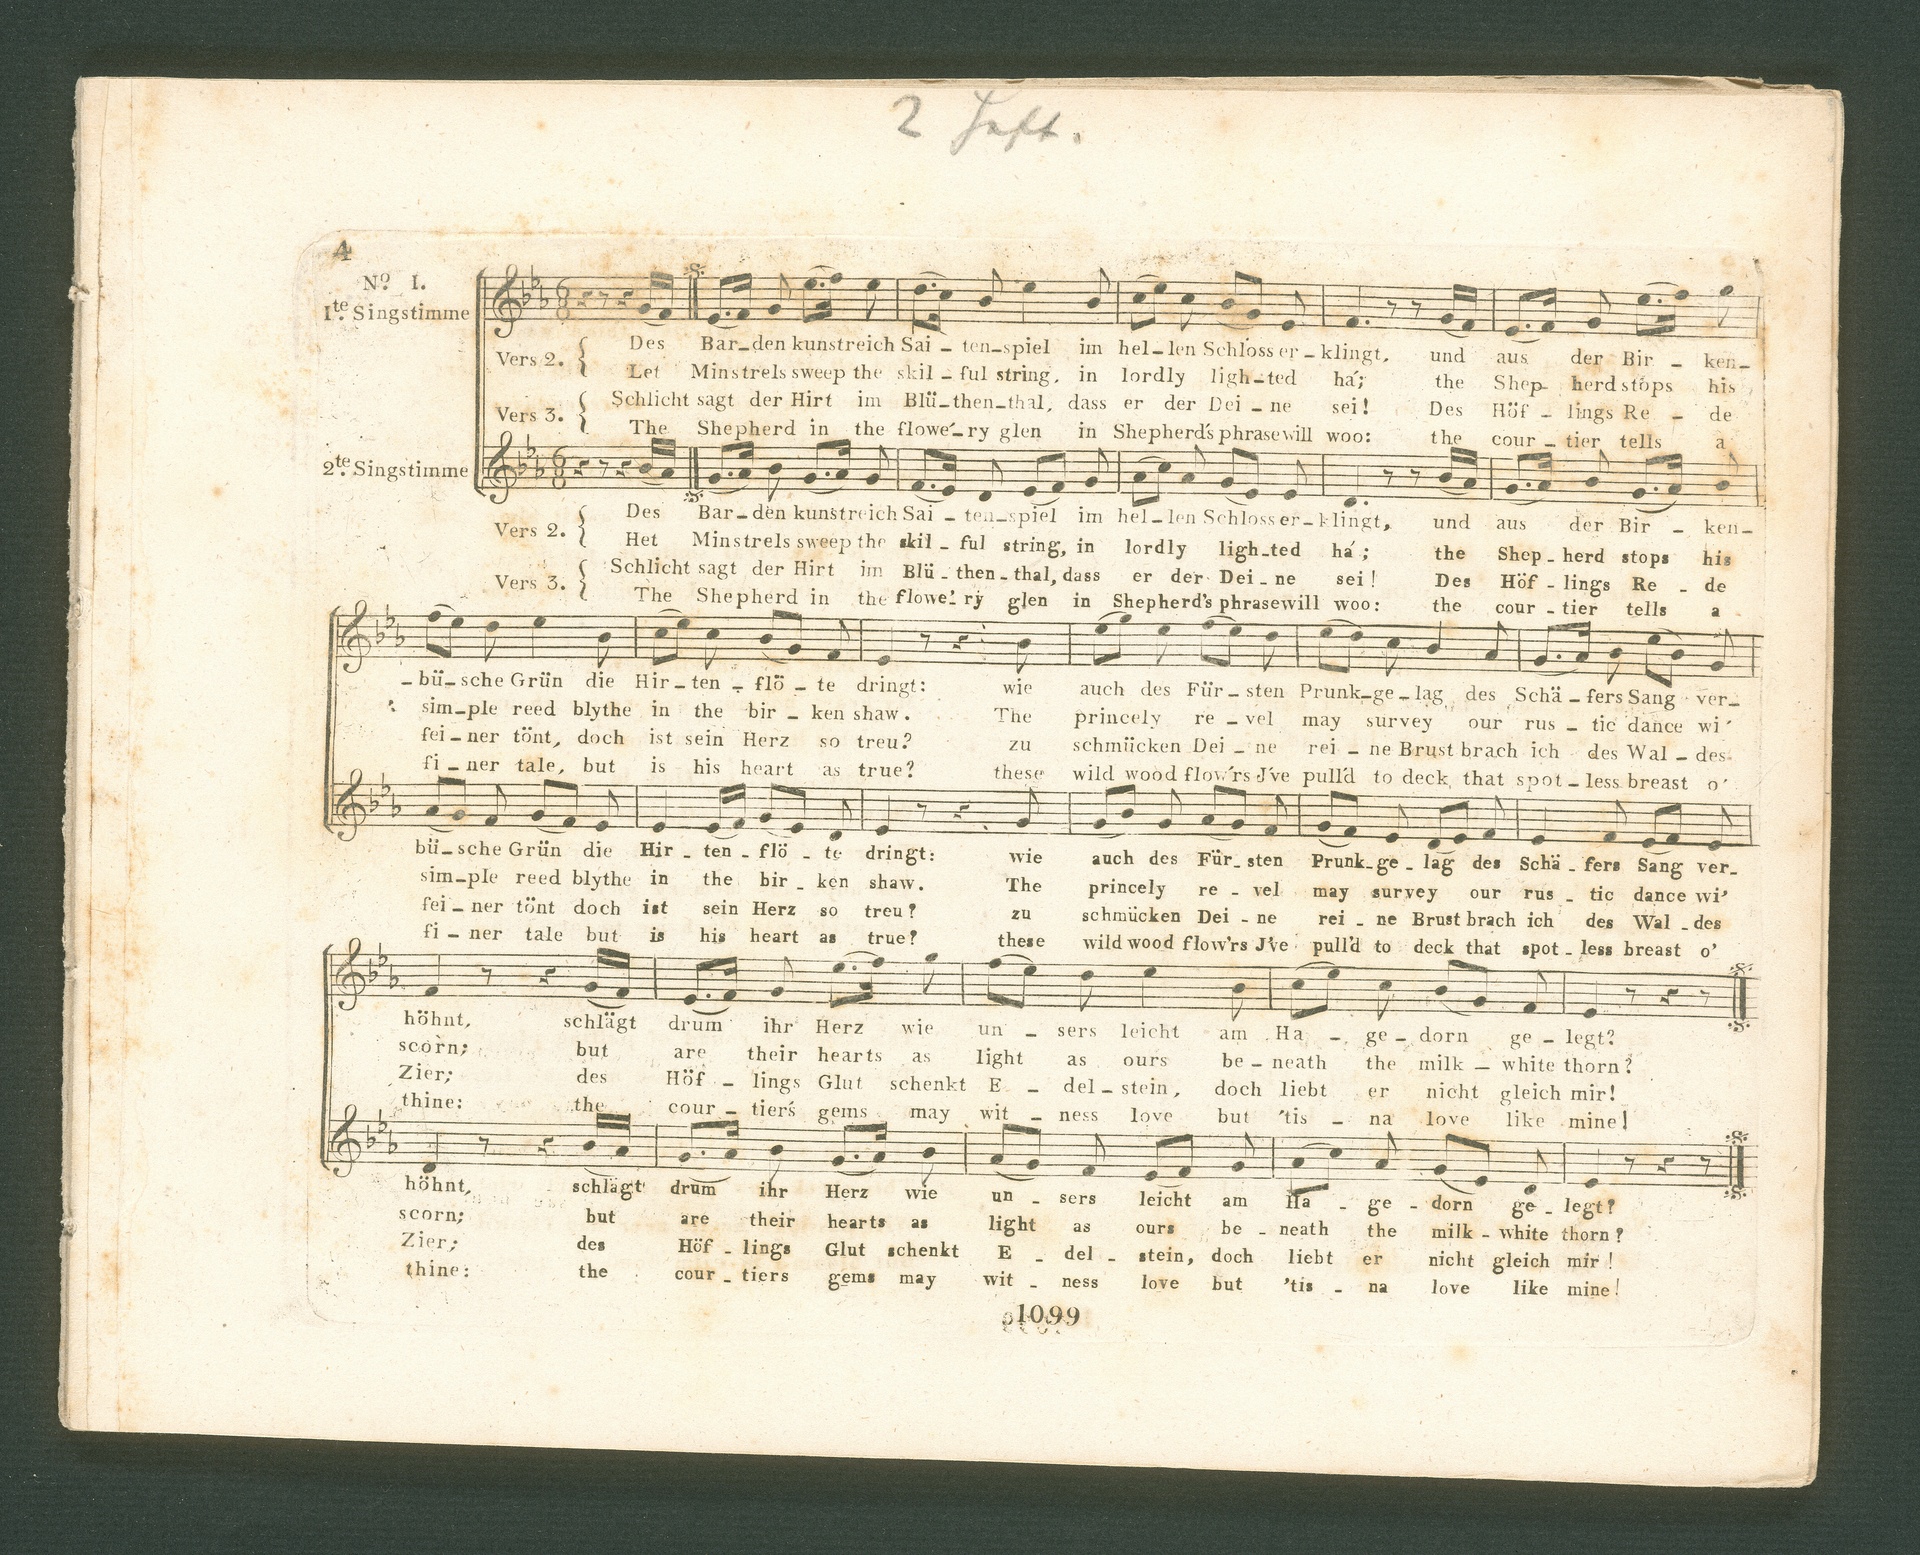 2 Heft.
4
Nº 1.
1te Singstimme
Vers 2. { Des Bar_den kunstreich Sai_ten_spiel im hel_len Schloss er_klingt, und aus der Bir_ken_
Let Minstrels sweep the skil_ful string, in lordly ligh_ted ha'; the Shep_herd stops his
Vers 3. { Schlicht sagt der Hirt im Blü_then_thal, dass er der Dei_ne sei! Des Höf_lings Re_de
The Shepherd in the flowe'_ry glen in Shepherd's phrase will woo: the cour_tier tells a
2te Singstimme
Vers 2. { Des Bar_den kunstreich Sai_ten_spiel im hel_len Schloss er_klingt, und aus der Bir_ken_
Het Minstrels sweep the skil_ful string, in lordly ligh_ted ha'; the Shep_herd stops his
Vers 3. { Schlicht sagt der Hirt im Blü_then_thal, dass er der Dei_ne sei! Des Höf_lings Re_de
The Shepherd in the flowe'_ry glen in Shepherd's phrase will woo: the cour_tier tells a
_bü_sche Grün die Hir_ten_flö_te dringt: wie auch des Für_sten Prunk_ge_lag des Schä_fers Sang ver_
sim_ple reed blythe in the bir_ken shaw. The princely re_vel may survey our rus_tic dance wi'
fei_ner tönt, doch ist sein Herz so treu? zu schmücken Dei_ne rei_ne Brust brach ich des Wal_des
fi_ner tale, but is his heart as true? these wild wood flow'rs J've pull'd to deck that spot_less breast o'
bü_sche Grün die Hir_ten_flö_te dringt: wie auch des Für_sten Prunk_ge_lag des Schä_fers Sang ver_
sim_ple reed blythe in the bir_ken shaw. The princely re_vel may survey our rus_tic dance wi'
fei_ner tönt doch ist sein Herz so treu? zu schmücken Dei_ne rei_ne Brust brach ich des Wal_des
fi_ner tale but is his heart as true? these wild wood flow'rs J've pull'd to deck that spot_less breast o'
höhnt, schlägt drum ihr Herz wie un_sers leicht am Ha_ge_dorn ge_legt?
scorn; but are their hearts as light as ours be_neath the milk_white thorn?
Zier; des Höf_lings Glut schenkt E_del_stein, doch liebt er nicht gleich mir!
thine: the cour_tier's gems may wit_ness love but 'tis_na love like mine!
höhnt, schlägt drum ihr Herz wie un_sers leicht am Ha_ge_dorn ge_legt?
scorn; but are their hearts as light as ours be_neath the milk_white thorn?
Zier; des Höf_lings Glut schenkt E_del_stein, doch liebt er nicht gleich mir!
thine: the cour_tiers gems may wit_ness love but 'tis_na love like mine!
1099